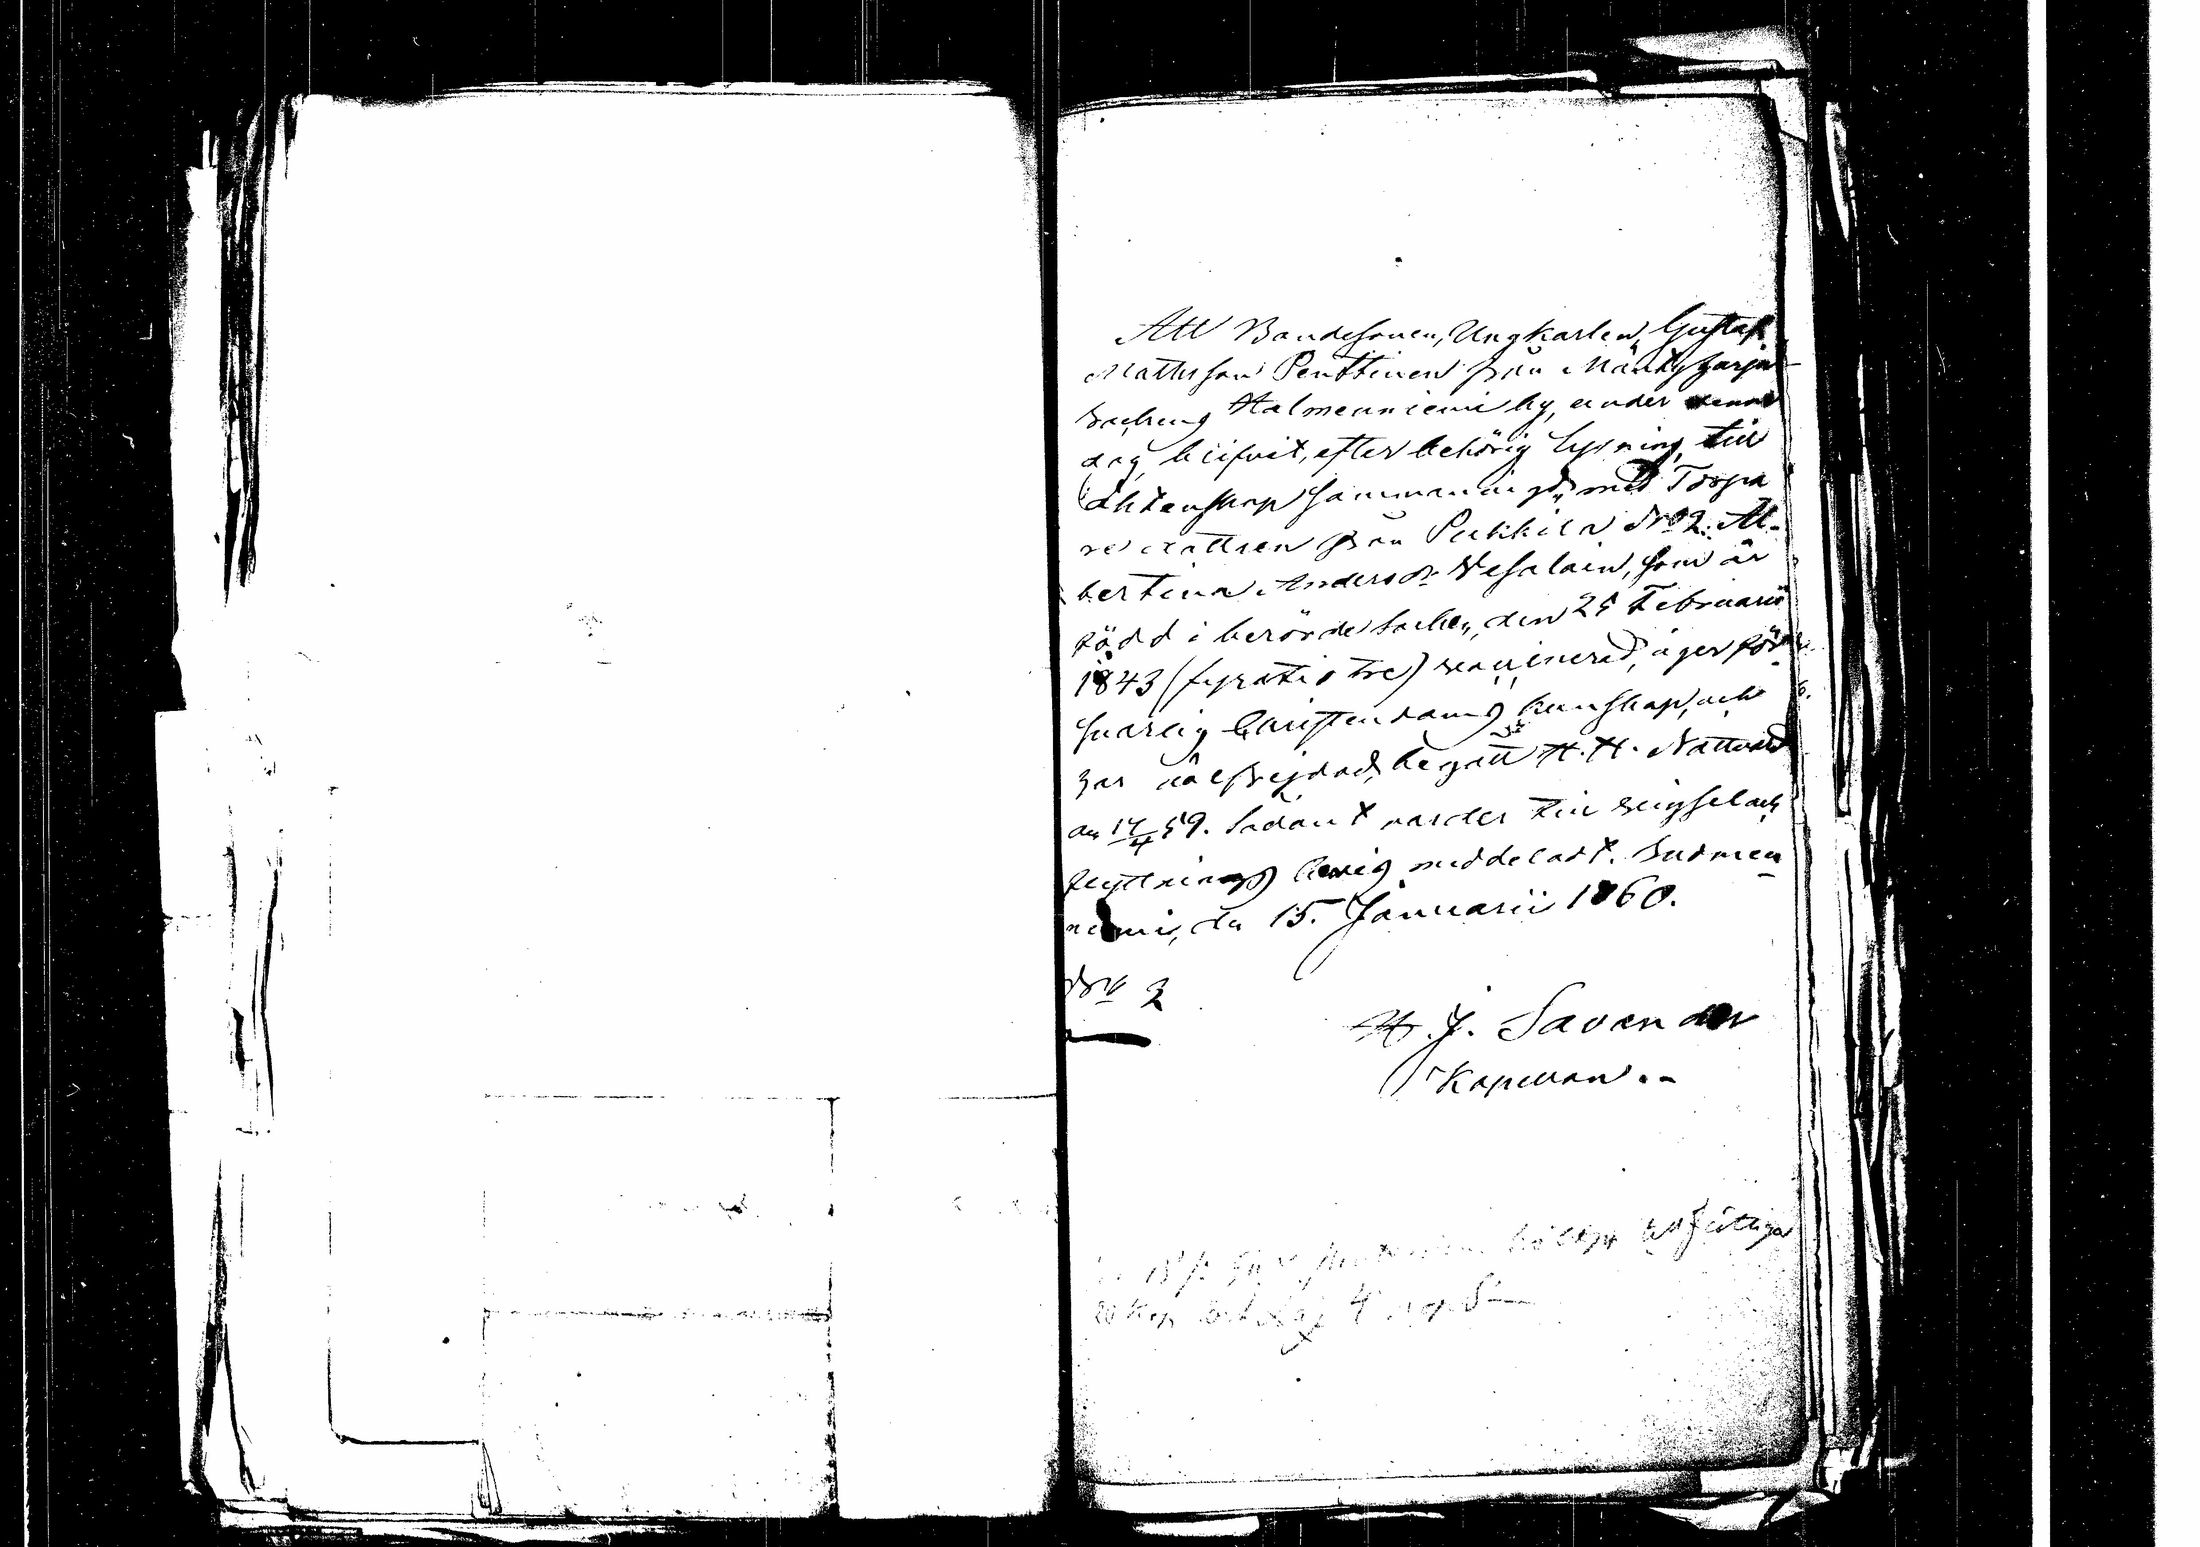 Att Bondesonen, Ungkarlen, Gustaf
Mattsson Penttinen från Mäntyharju
Sockens Halmenniemi by, under denna
dag blifvit, efter behörig lysning, till
ächtenskap sammanvigd, med Torpa
re dottren från Pukkila No 2. Al-
bertina Andersdr Vesalain, som är
född i berörde Socken, den 25 Februarii
1843 (fyratio tre) vaccinerad, äger för-
svarlig Christendoms kunskap, och
har välfrejdad, begått H. H. Nattvard
den 17/4 59. Sådant varder till vigsel och
flyttnings bevis meddeladt. Suomen
niemi, den 15. Januarii 1860.
No 2
H. J. Savander
Kapellan.